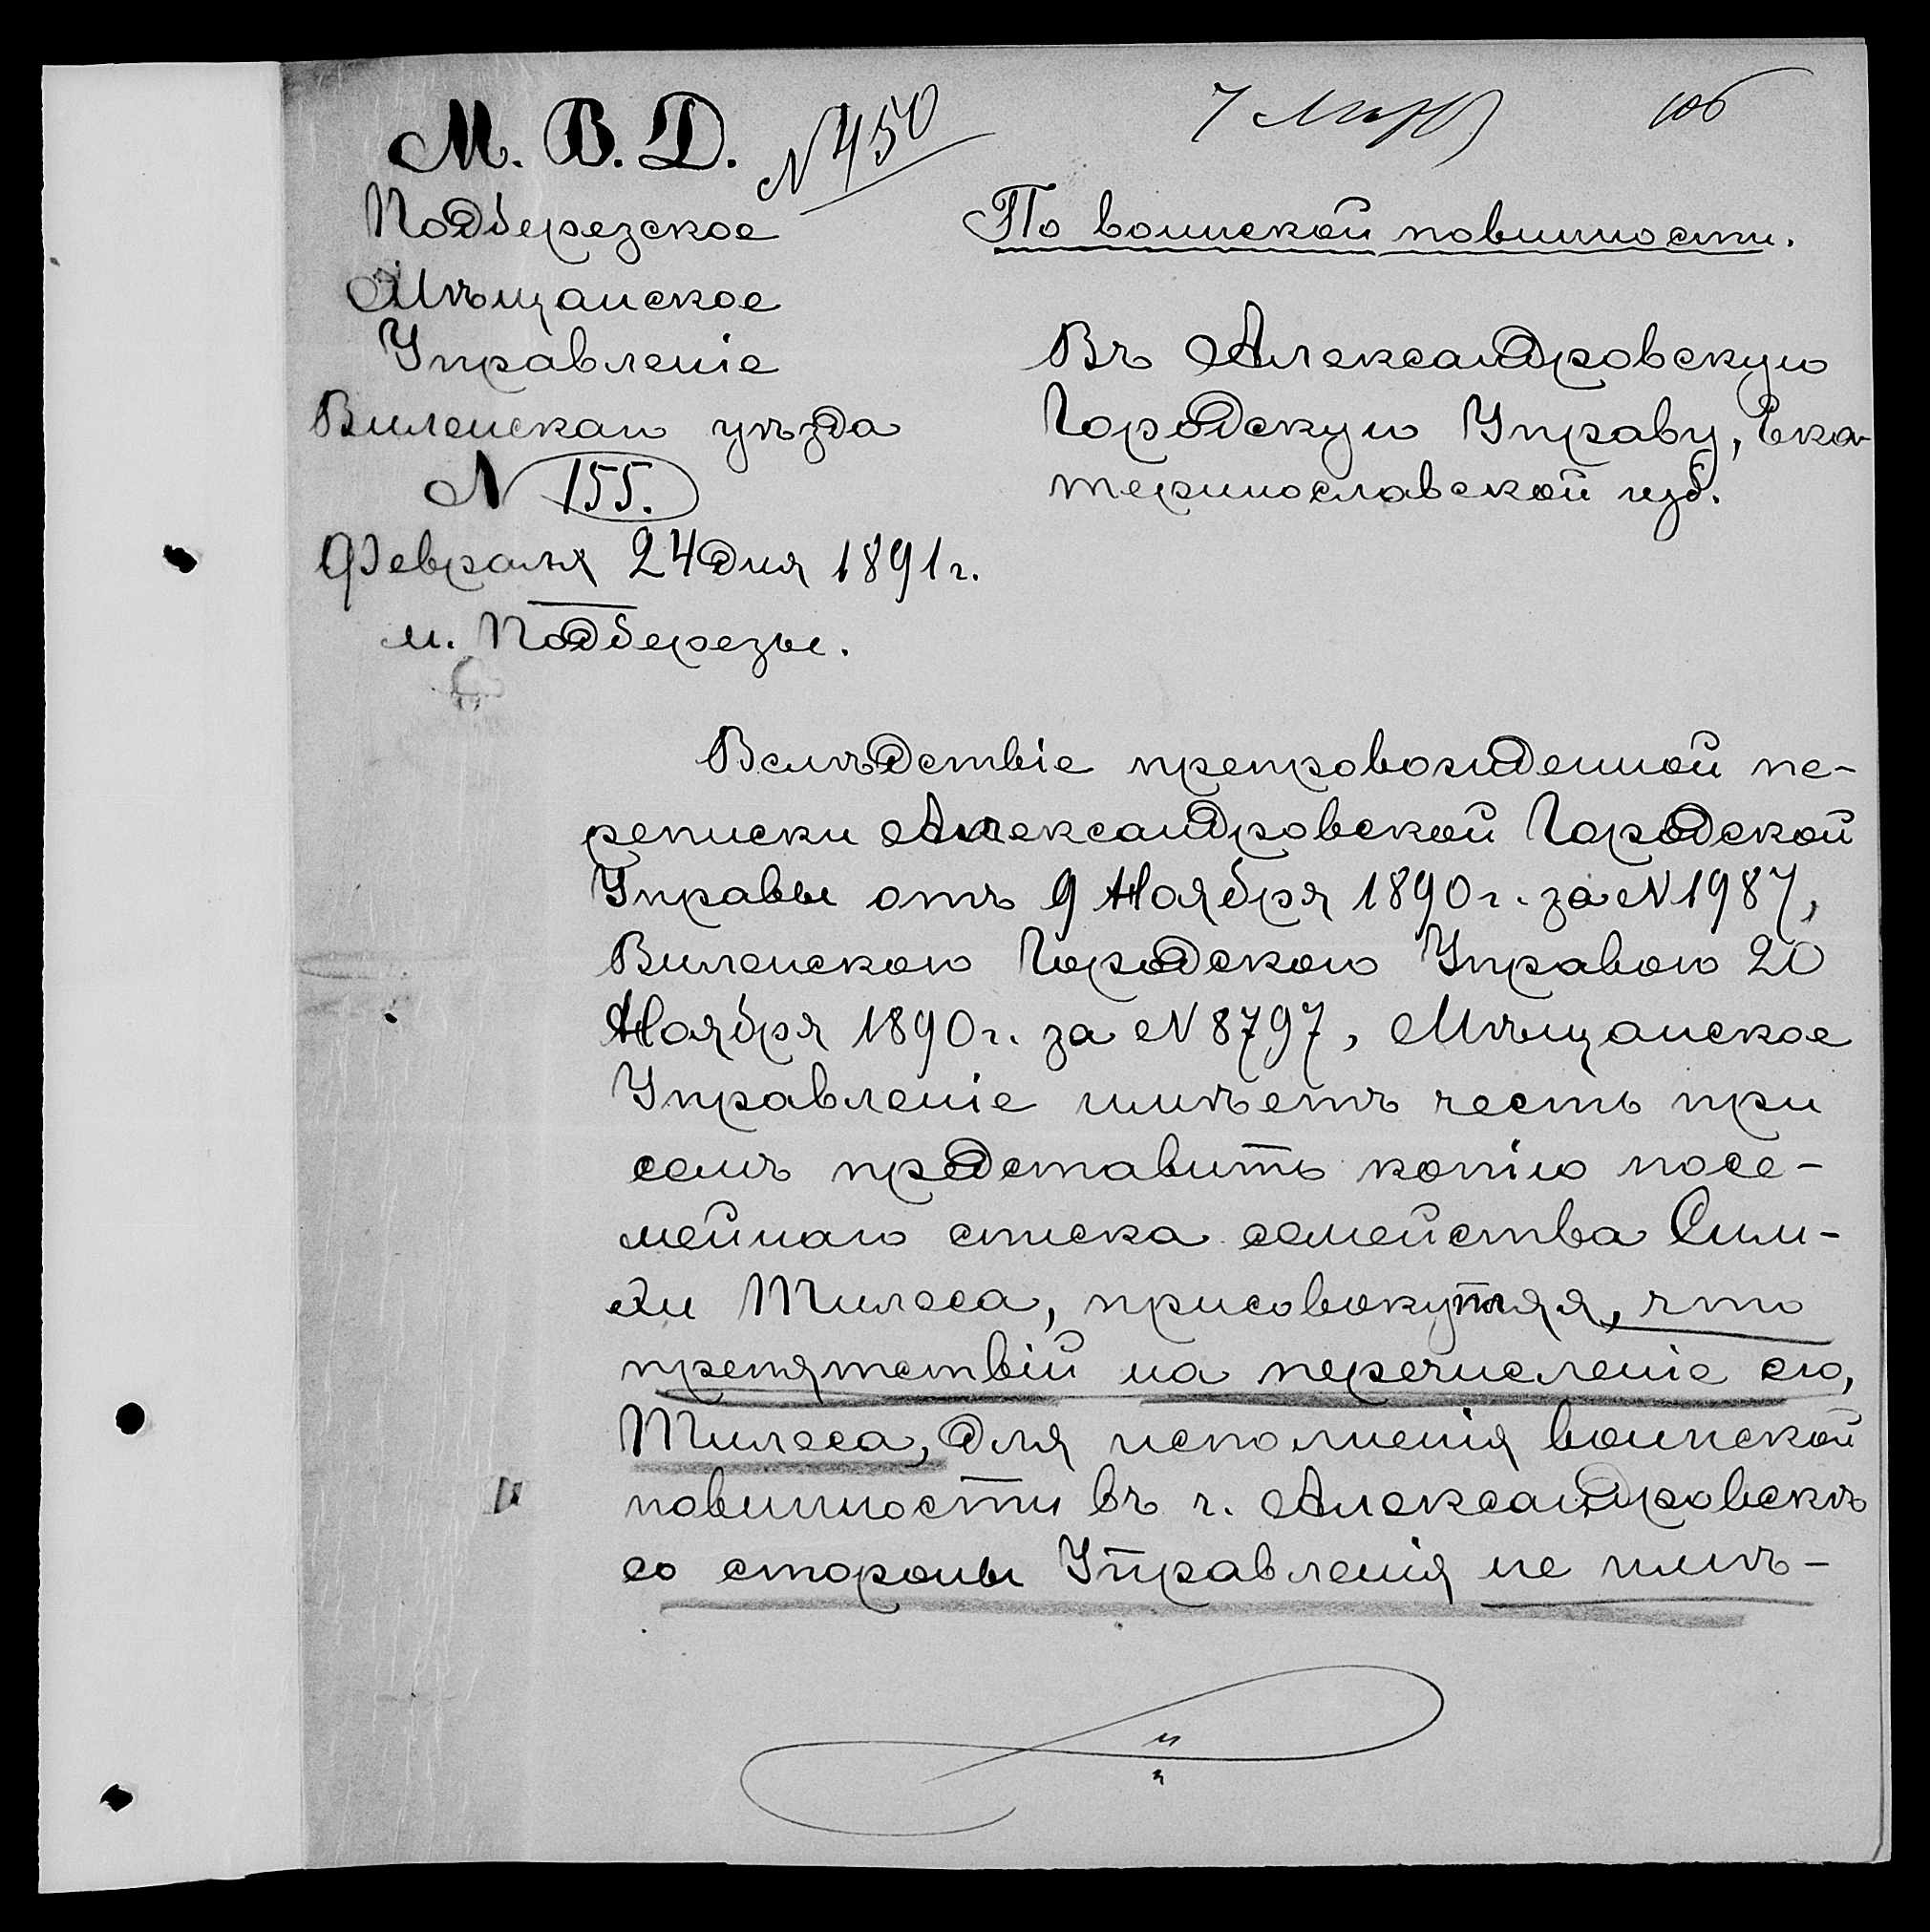 М. В. Д.
N 450
7 Мар
106
Подберезское
Мѣщанское
Управленіе
Виленскаго уѣзда
N 155.
Февраля 24 дня 1891 г.
м. Подберезье.
По воинской повинности.
Въ Александровскую
Городскую Управу, Ека-
теринославской губ.
Вслѣдствіе препровожденной пе-
реписки Александровской Городской
Управы отъ 9 Ноября 1890 г. за N 1987,
Виленскою Городскою Управою 20
Ноября 1890 г. за N 8797, Мѣщанское
Управленіе имѣетъ честь при
семъ представить копію посе-
мейнаго списка семейства Сим-
хи Тилеса, присовокупляя, что
препятствій на перечисленіе его,
Тилеса, для исполненія воинской
повинности въ г. Александровскѣ
со стороны Управленія не имѣ-